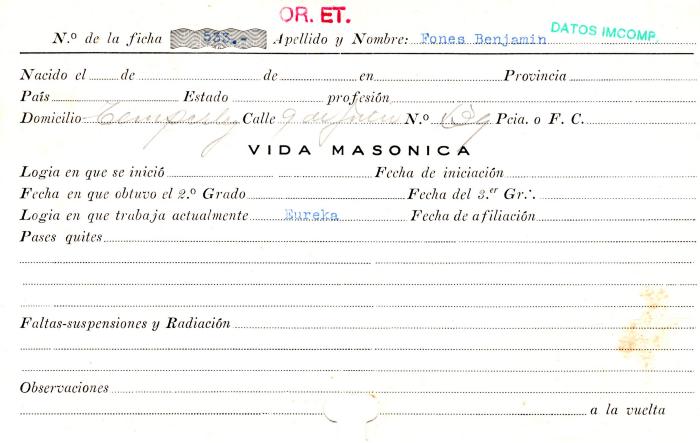 OR. ET.
DATOS IMCOMP
N.º de la ficha 533.- Apellido y Nombre: Fones Benjamin
Nacido el de de en Provincia
País Estado profesión
Domicilio Temperley Calle N.º Pcia. o F. C.
VIDA MASONICA
Logia en que se inició Fecha de iniciación
Fecha en que obtuvo el 2.º Grado Fecha del 3.er Gr∴
Logia en que trabaja actualmente Eureka Fecha de afiliación
Pases quites
Faltas-suspensiones y Radiación
Observaciones
a la vuelta